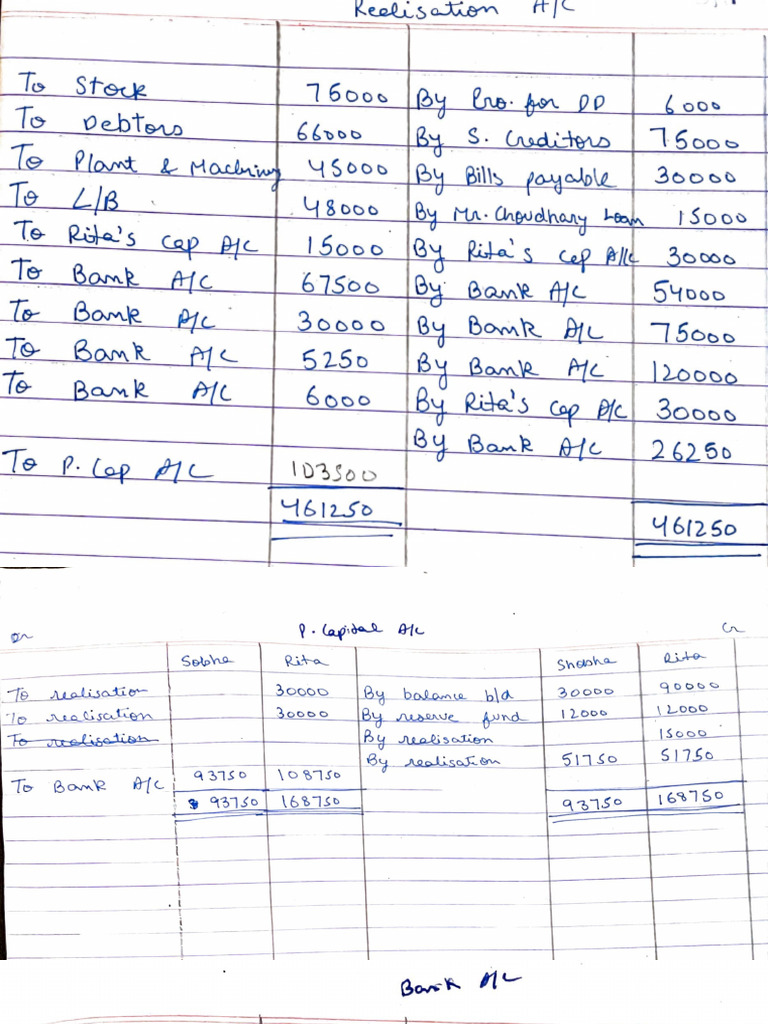 Realisation A/C
To Stock 75000 By Pro. for DD 6000
To Debtors 66000 By S. Creditors 75000
To Plant & Machinery 45000 By Bills payable 30000
To L/B 48000 By Mr. Choudhary Loan 15000
To Rita's Cap A/C 15000 By Rita's Cap A/C 30000
To Bank A/C 67500 By Bank A/C 54000
To Bank A/C 30000 By Bank A/C 75000
To Bank A/C 5250 By Bank A/C 120000
To Bank A/C 6000 By Rita's Cap A/C 30000
By Bank A/C 26250
To P. Cap A/C 103500
461250 461250
Dr P. Capital A/C Cr
Sobha Rita Shobha Rita
To realisation 30000 By balance b/d 30000 90000
To realisation 30000 By reserve fund 12000 12000
To realisation By realisation 15000
By realisation 51750 51750
To Bank A/C 93750 108750
93750 168750 93750 168750
Bank A/C